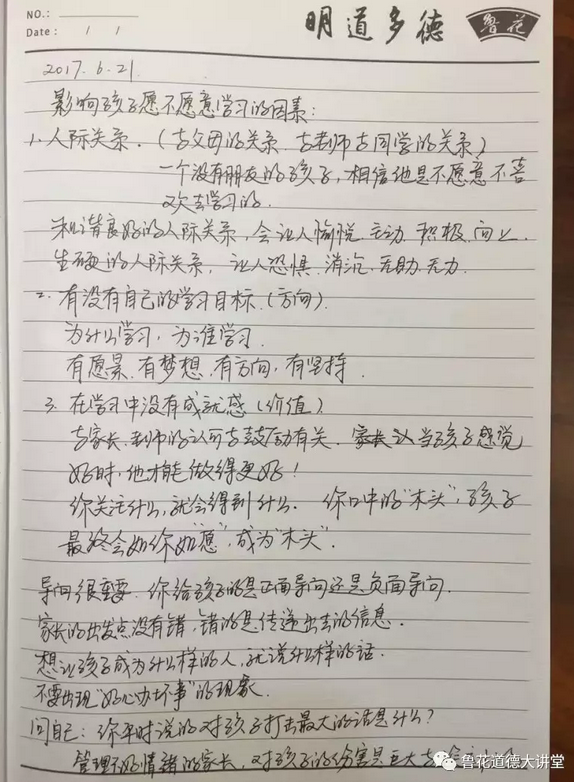 NO.:
Date: / /
明道多德
鲁花
2017.6.21
影响孩子愿不愿意学习的因素:
1.人际关系.(与父母的关系.与老师与同学的关系)
一个没有朋友的孩子,相信他是不愿意不喜
欢去学习的.
和谐良好的人际关系,会让人愉悦.主动.积极.向上.
生硬的人际关系,让人恐惧.消沉.无助.无力.
2.有没有自己的学习目标.(方向)
为什么学习,为谁学习.
有愿景.有梦想.有方向,有坚持.
3.在学习中没有成就感(价值)
与家长.老师的认可与鼓励有关.家长认当孩子感觉
好时,他才能做得更好!
你关注什么,就会得到什么.你口中的"木头",孩子
最终会如你如"愿",成为"木头".
导向很重要.你给孩子的是正面导向还是负面导向.
家长的出发点没有错,错的是传递出去的信息.
想让孩子成为什么样的人,就说什么样的话.
不要出现"好心办坏事"的现象.
问自己:你平时说的对孩子打击最大的话是什么?
管理不好情绪的家长,对孩子的伤害是巨大
鲁花道德大讲堂